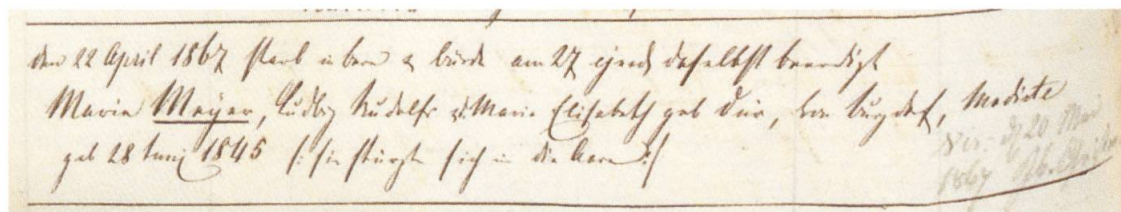 den 22 April 1867 starb in bern & wurde am 27 ejusd daselbst beerdigt
Maria Meyer, Ludwig Rudolfs & Maria Elisabeth geb Dür, von Burgdorf, Modiste
geb 28 Juni 1845 /: sie stürzte sich in die Aare :/
20 Mai
1867